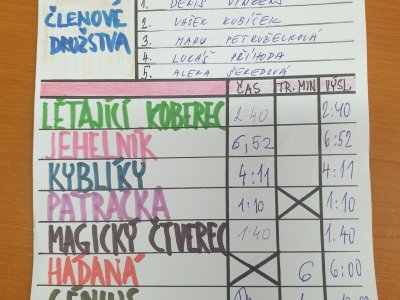 ČLENOVÉ DRUŽSTVA
1. DENIS
2. VAŠEK KUBÍČEK
3. MARU PETRUŽELKOVÁ
4. LUKÁŠ PŘÍHODA
5. ALENA ŠEREDOVÁ
ČAS TR. MIN VÝSL.
LÉTAJÍCÍ KOBEREC 2:40 2:40
JEHELNÍK 6,52 6:52
KYBLÍKY 4:11 4:11
PATRAČKA 1:10 1:10
MAGICKÝ ČTVEREC 1:40 1:40
HÁDANÁ 6 6:00
GÉNIUS